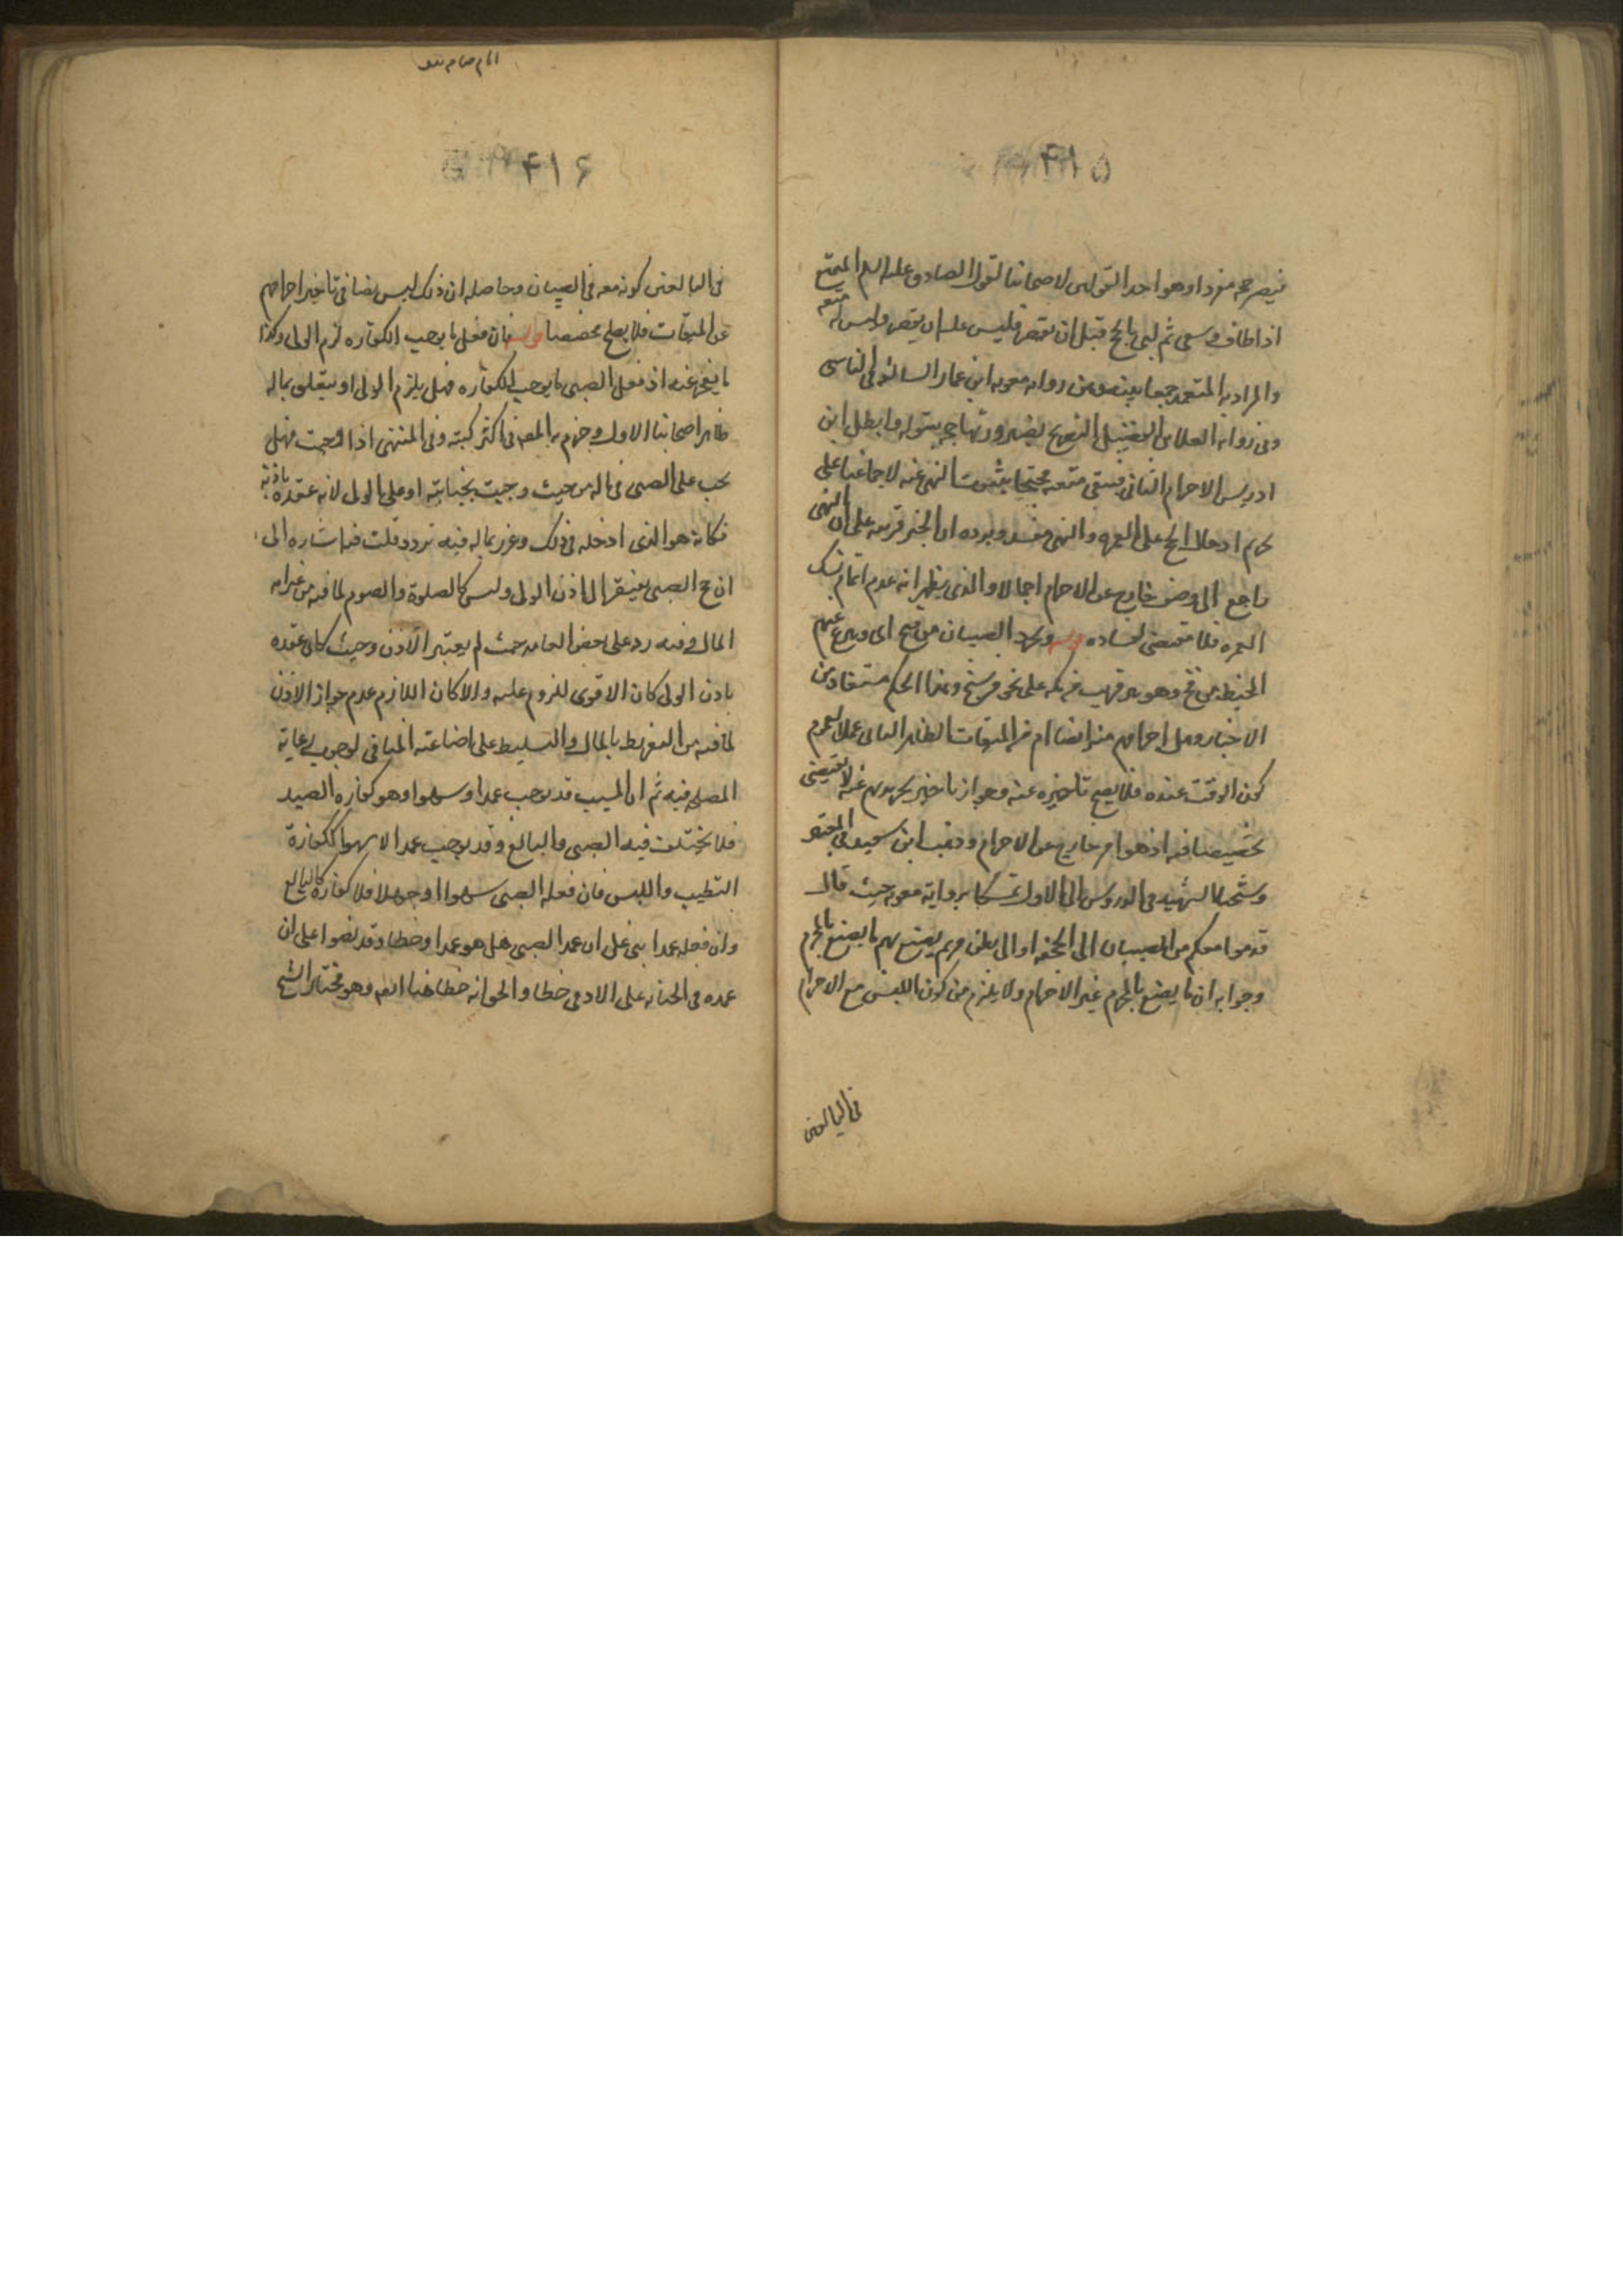 ۴۱۵
فيصير حجه مفردا وهو احد القولين لاصحابنا لقول الصادق عليه السلم المتمتع
اذا طاف وسعى ثم لبى بالحج قبل ان يقصر فليس عليه ان يقصر وليس له متعه
والمراد به المتعمد جمعا بينه وبين رواية معويه ابن عمار السالفه في الناسي
وفي رواية العلا بن الفضيل التصريح بصيرورتها حجه مبتوله وابطل ابن
ادريس الاحرام الثاني فتبقى متعه محتجا بثبوت النهي عنه لاجماعنا على
تحريم ادخال الحج على العمره والنهي مفسد ويرده ان الخبر قرينه على ان النهي
راجع الى وصف خارج عن الاحرام اجمالا والذي يظهر انه عدم اتمام نسك
العمره فلا مقتضى لفساده قوله ويجرد الصبيان من فخ اي وينزع عنهم
المخيط من فخ وهو بير قريب من مكه على نحو فرسخ وهذا الحكم مستفاد من
الاخبار وهل احرامهم منه ايضا ام من الميقات الظاهر الثاني عملا بعموم
كون الوقت عنده فلا يصح تاخيره عنه وجواز تاخير تجريدهم عنه لا يقتضي
تخصيصا فيه اذ هو امر خارج عن الاحرام وذهب ابن سعيد في المعتبر
وشيخنا الشهيد في الدروس الى الاول تمسكا برواية معويه حيث قال
قدموا معكم من الصبيان الى الجحفه او الى بطن مر ثم يصنع بهم ما يصنع بالمحرم
وجوابه ان ما يصنع بالمحرم غير الاحرام ولا يلزم من كون اللبس مع الاحرام
في البالغين
۴۱۶
في البالغين كونه معه في الصبيان وحاصله ان ذلك ليس نصا في تاخير احرامهم
عن الميقات فلا يصلح مخصصا قوله فان فعل ما يوجب الكفاره لزم الولي وكذا
ما يعجز عنه اذ فعل الصبي ما يوجب الكفاره فهل يلزم الولي او يتعلق بماله
ظاهر اصحابنا الاول وجزم به المصنف في اكثر كتبه وفي المنتهى اذا وجبت فهل
تجب على الصبي في ماله من حيث وجبت بجنايته او على الولي لانه عقده باذنه
فكانه هو الذي ادخله في ذلك وغرر بماله فيه تردد قلت فيه اشاره الى
ان حج الصبي يفتقر الى اذن الولي وليس كالصلوة والصوم لما فيه من غرامه
المال وفيه رد على بعض العامه حيث لم يعتبر الاذن وحيث كان عقده
باذن الولي كان الاقوى للزوم عليه والا كان اللازم عدم جواز الاذن
لما فيه من التفريط بالمال والتسليط على اضاعته المنافي لوجوب رعاية
المصلحه فيه ثم ان السبب قد يوجب عمدا وسهوا وهو كفاره الصيد
فلا يختلف فيه الصبي والبالغ وقد يوجب عمدا لا سهوا ككفارة
التطيب واللبس فان فعله الصبي سهوا او جهلا فلا كفاره كالبالغ
وان فعله عمدا بنى على ان عمد الصبي هل هو عمد او خطا وقد نصوا على ان
عمده في الجنايه على الادمي خطا والحق انه خطا هنا ايضا وهو مختار الشيخ